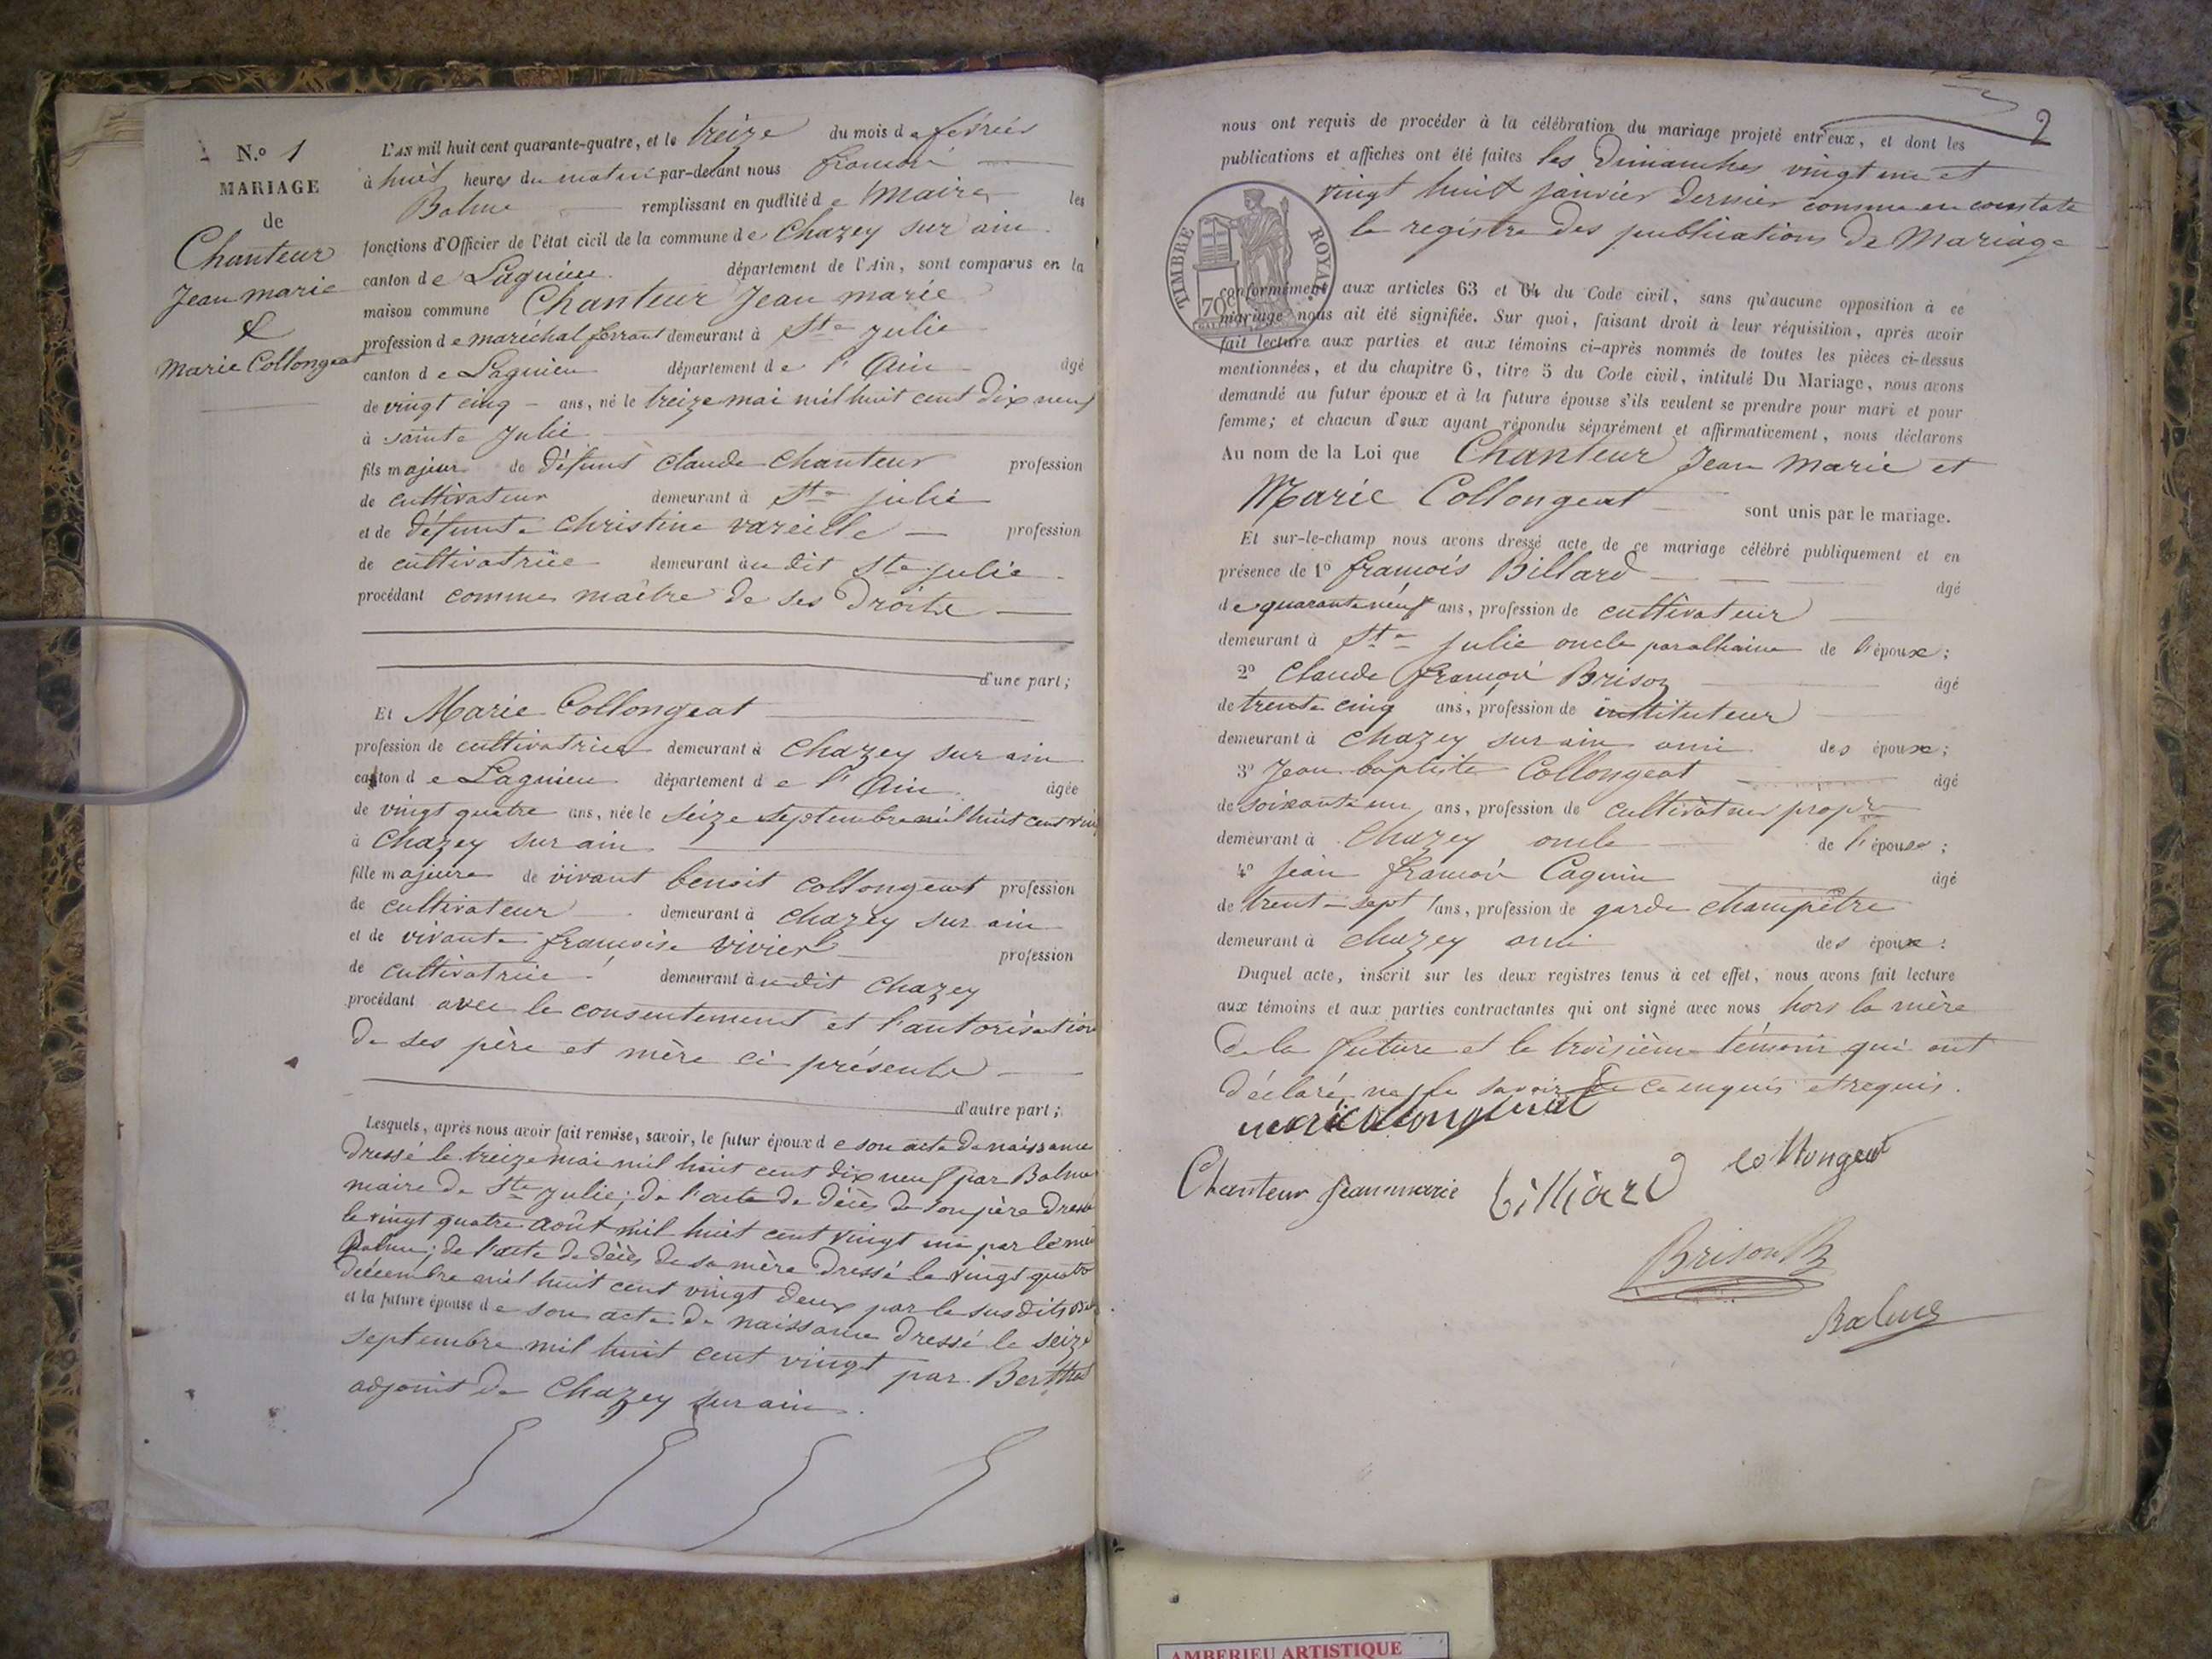 N.º 1
MARIAGE
de
Chanteur
Jean marie
&
Marie Collongeat
L'AN mil huit cent quarante-quatre, et le treize du mois de février
à huit heures du matin par-devant nous françois
Balme remplissant en qualité de Maire les
fonctions d'Officier de l'état civil de la commune de Chazey sur ain
canton de Lagnieu département de l'Ain, sont comparus en la
maison commune Chanteur Jean marie
profession de maréchal ferrant demeurant à Ste julie
canton de Lagnieu département de l'Ain âgé
de vingt cinq ans, né le treize mai mil huit cent dix neuf
à sainte Julie
fils majeur de défunt Claude Chanteur profession
de cultivateur demeurant à Ste julie
et de défunte Christine vareille profession
de cultivatrice demeurant au dit Ste julie
procédant comme maître de ses droits
d'une part;
Et Marie Collongeat
profession de cultivatrice demeurant à Chazey sur ain
canton de Lagnieu département de l'Ain âgée
de vingt quatre ans, née le seize septembre mil huit cent vingt
à Chazey sur ain
fille majeure de vivant benoit Collongeat profession
de cultivateur demeurant à Chazey sur ain
et de vivante françoise vivier profession
de cultivatrice demeurant au dit Chazey
procédant avec le consentement et l'autorisation
de ses père et mère ci présents
d'autre part;
Lesquels, après nous avoir fait remise, savoir, le futur époux de son acte de naissance
dressé le treize mai mil huit cent dix neuf par Balme
maire de Ste Julie; de l'acte de décès de son père dressé
le vingt quatre août mil huit cent vingt un par le
Balme; de l'acte de décès de sa mère dressé le vingt quatre
décembre mil huit cent vingt deux par le susdit
et la future épouse de son acte de naissance dressé le seize
septembre mil huit cent vingt par Berthet
adjoint de Chazey sur ain.
2
nous ont requis de procéder à la célébration du mariage projeté entr'eux, et dont les
publications et affiches ont été faites les Dimanches vingt un et
vingt huit janvier dernier comme en constate
le registre des publications de Mariage
TIMBRE ROYAL
70c
conformément aux articles 63 et 64 du Code civil, sans qu'aucune opposition à ce
mariage nous ait été signifiée. Sur quoi, faisant droit à leur réquisition, après avoir
fait lecture aux parties et aux témoins ci-après nommés de toutes les pièces ci-dessus
mentionnées, et du chapitre 6, titre 5 du Code civil, intitulé Du Mariage, nous avons
demandé au futur époux et à la future épouse s'ils veulent se prendre pour mari et pour
femme; et chacun d'eux ayant répondu séparément et affirmativement, nous déclarons
Au nom de la Loi que Chanteur Jean Marie et
Marie Collongeat sont unis par le mariage.
Et sur-le-champ nous avons dressé acte de ce mariage célébré publiquement et en
présence de 1º françois Billard âgé
de quarante neuf ans, profession de cultivateur
demeurant à Ste julie oncle par alliance de l'époux;
2º Claude françois Brison âgé
de trente cinq ans, profession de instituteur
demeurant à Chazey sur ain ami des époux;
3º Jean baptiste Collongeat âgé
de soixante un ans, profession de cultivateur propre
demeurant à Chazey oncle de l'épouse;
4º Jean françois Caguin âgé
de trente sept ans, profession de garde champêtre
demeurant à Chazey ami des époux:
Duquel acte, inscrit sur les deux registres tenus à cet effet, nous avons fait lecture
aux témoins et aux parties contractantes qui ont signé avec nous hors la mère
de la future et le troisième témoin qui ont
déclaré ne le savoir de ce enquis et requis.
marie collongeat
Chanteur jean marie billiard collongeat
Brison
Balme
AMBERIEU ARTISTIQUE